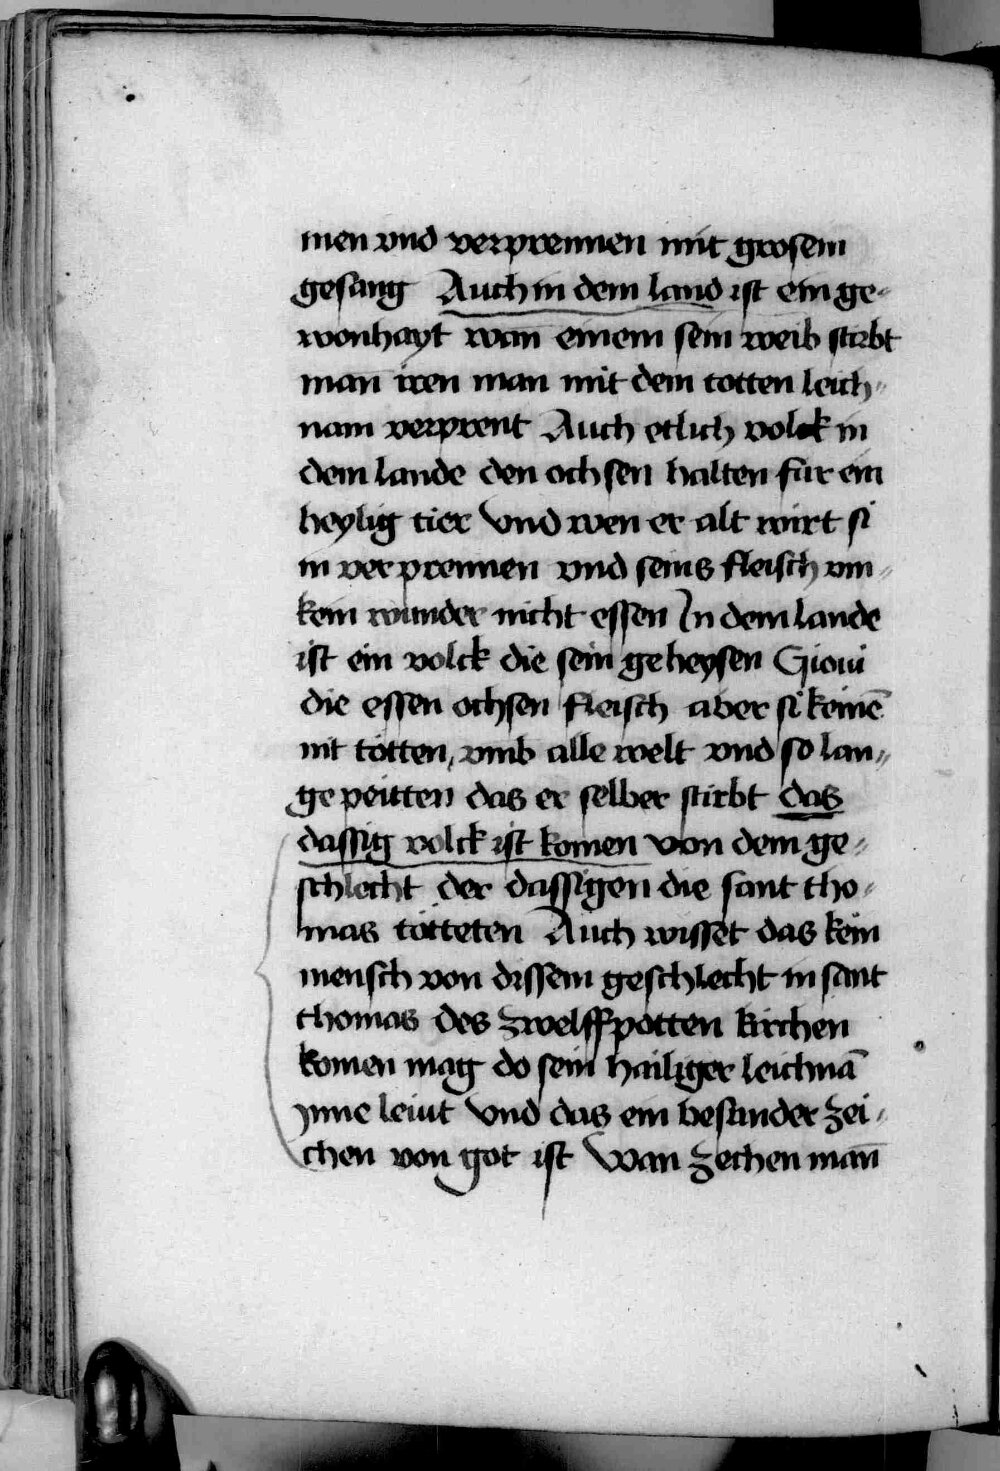 men vnd verprennen mit grosem
gesang Auch in dem land ist ein ge-
wonhayt wan einem sein weib stirbt
man̄ iren man mit dem totten leich-
nam verprent Auch etlich volck in
dem lande den ochsen halten fur ein
heylig tier Vnd wen er alt wirt si
in verprennen vnd seins fleisch vm-
kein wunder nicht essen In dem lande
ist ein volck die sein geheysen Gioui
die essen ochsen fleisch aber si keinē
nit totten, vmb alle welt vnd so lan-
ge peitten das er selber stirbt das
dassig volck ist komen von dem ge-
schlecht der dassigen die sant tho-
mas totteten Auch wisset das kein
mensch von dissem geschlecht in sant
thomas des zwelffpotten kirchen
komen mag do sein hailiger leichnā
ynne leiut Vnd das ein besunder zei-
chen von got ist Wan zechen man̄